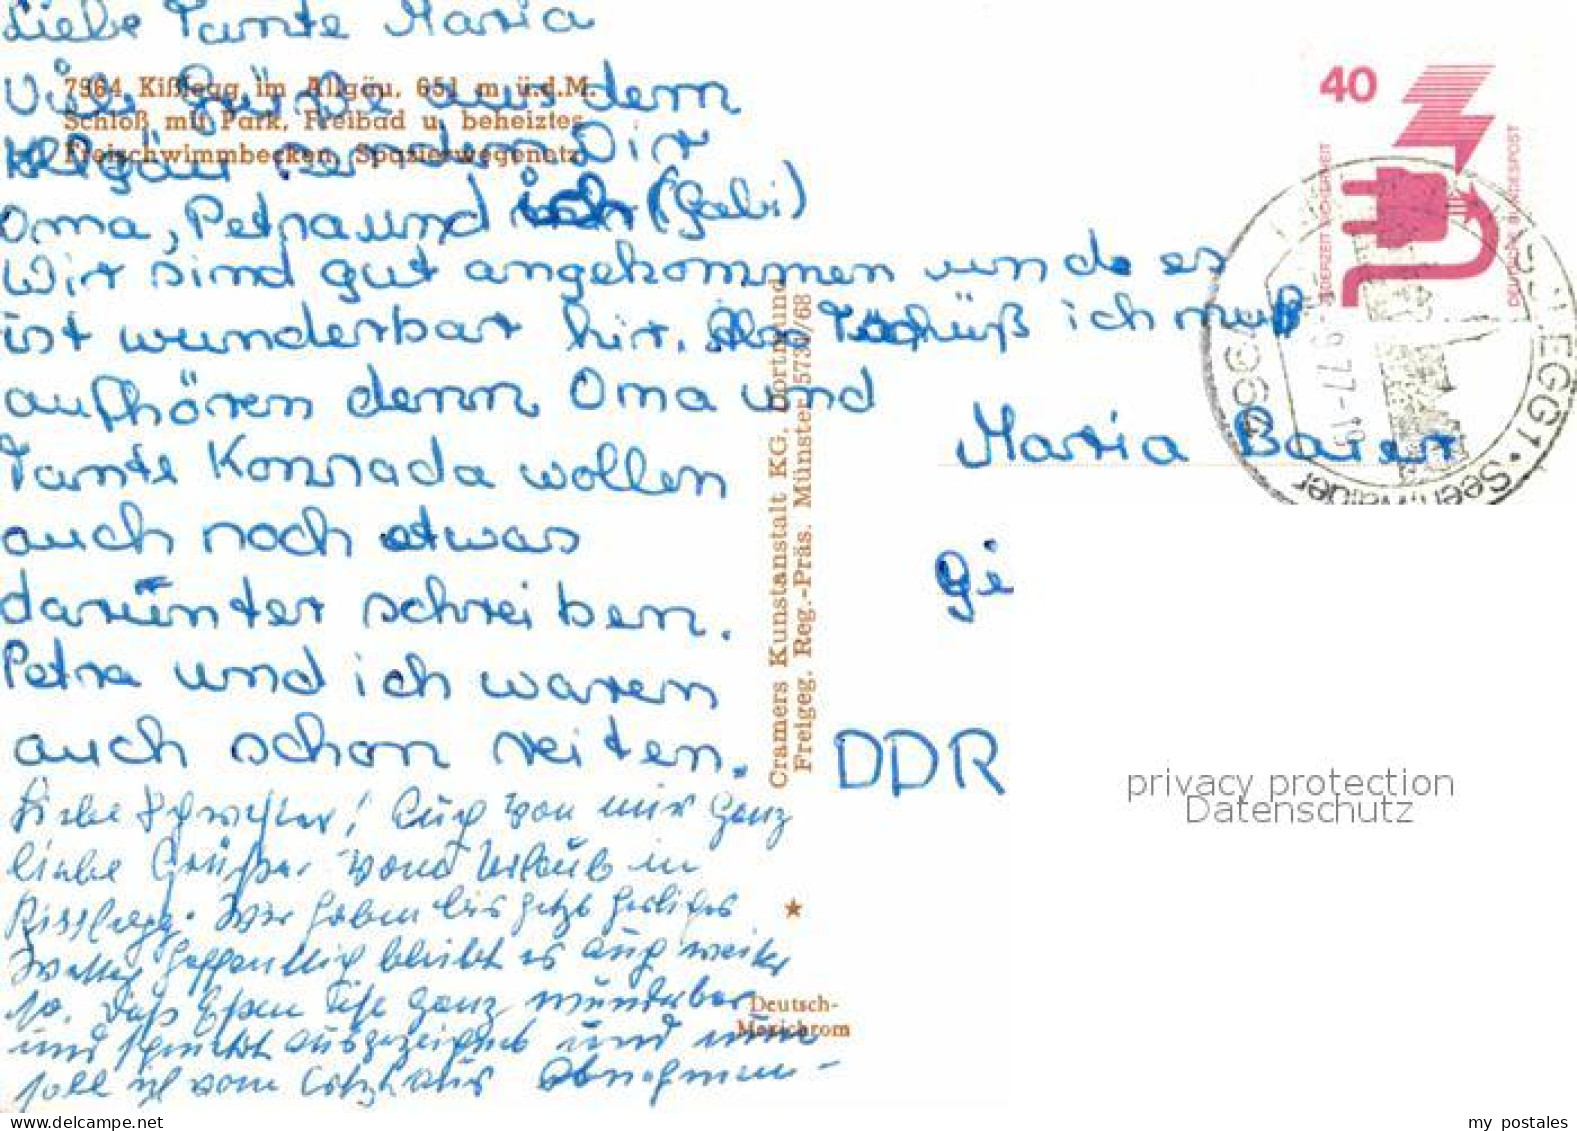 Liebe Tante Maria
7964 Kißlegg im Allgäu, 651 m ü.d.M.
Schloß mit Park, Freibad u. beheiztes
Freischwimmbecken, Spazierwegenetz
Viele Grüße aus dem
Allgäu senden Dir
Oma, Petra und ich (Gabi)
Wir sind gut angekommen und es
ist wunderbar hir. Tschüß ich muß
aufhören denn Oma und
Tante Konrada wollen
auch noch etwas
darunter schreiben.
Petra und ich waren
auch schon reiten.
Liebe Schwester! Auch von mir ganz
liebe Grüße vom Urlaub in
Kisslegg. Wir haben bis jetzt herliches
Wetter hoffentlich bleibt es auch weiter
so. Das Essen ist ganz wunderbar
und schmekt ausgezeichnet und nun
soll ich vom abnehmen
Cramers Kunstanstalt KG, Dortmund
Freigeg. Reg.-Präs. Münster 5730/68
Deutsch-
Mexichrom
40
JEDERZEIT SICHERHEIT
DEUTSCHE BUNDESPOST
KISSLEGG 1
7964
77-19
Maria Baier
Gi
DDR
privacy protection
Datenschutz
my postales